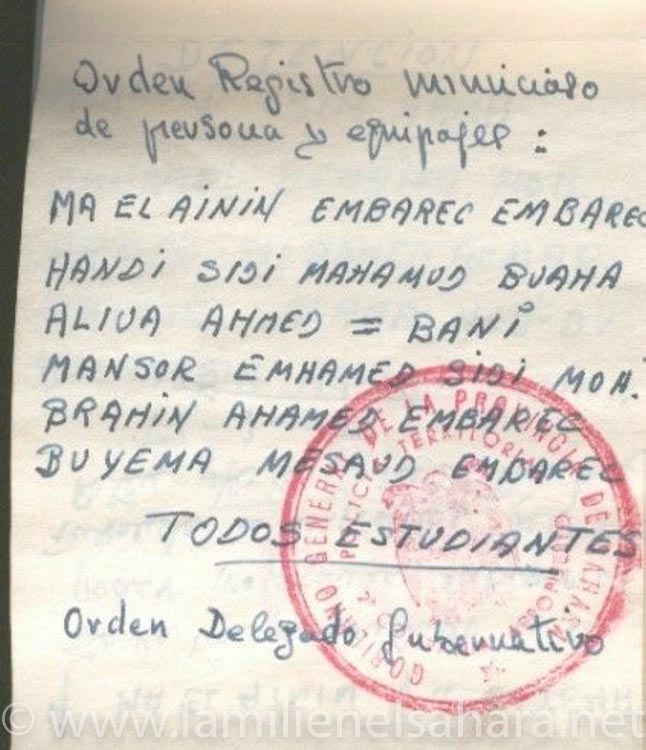 Orden Registro minucioso
de persona y equipajes :
MA EL AININ EMBAREC EMBAREC
HANDI SIDI MAHAMUD BUAHA
ALIUA AHMED = BANI
MANSOR EMHAMED SIDI MOH.
BRAHIN AHAMED EMBAREC
BUYEMA MESAUD EMBAREC
TODOS ESTUDIANTES
Orden Delegado Gubernativo
GOBIERNO GENERAL DE LA PROVINCIA DE SAHARA
POLICIA TERRITORIAL
© www.lamilienelsahara.net